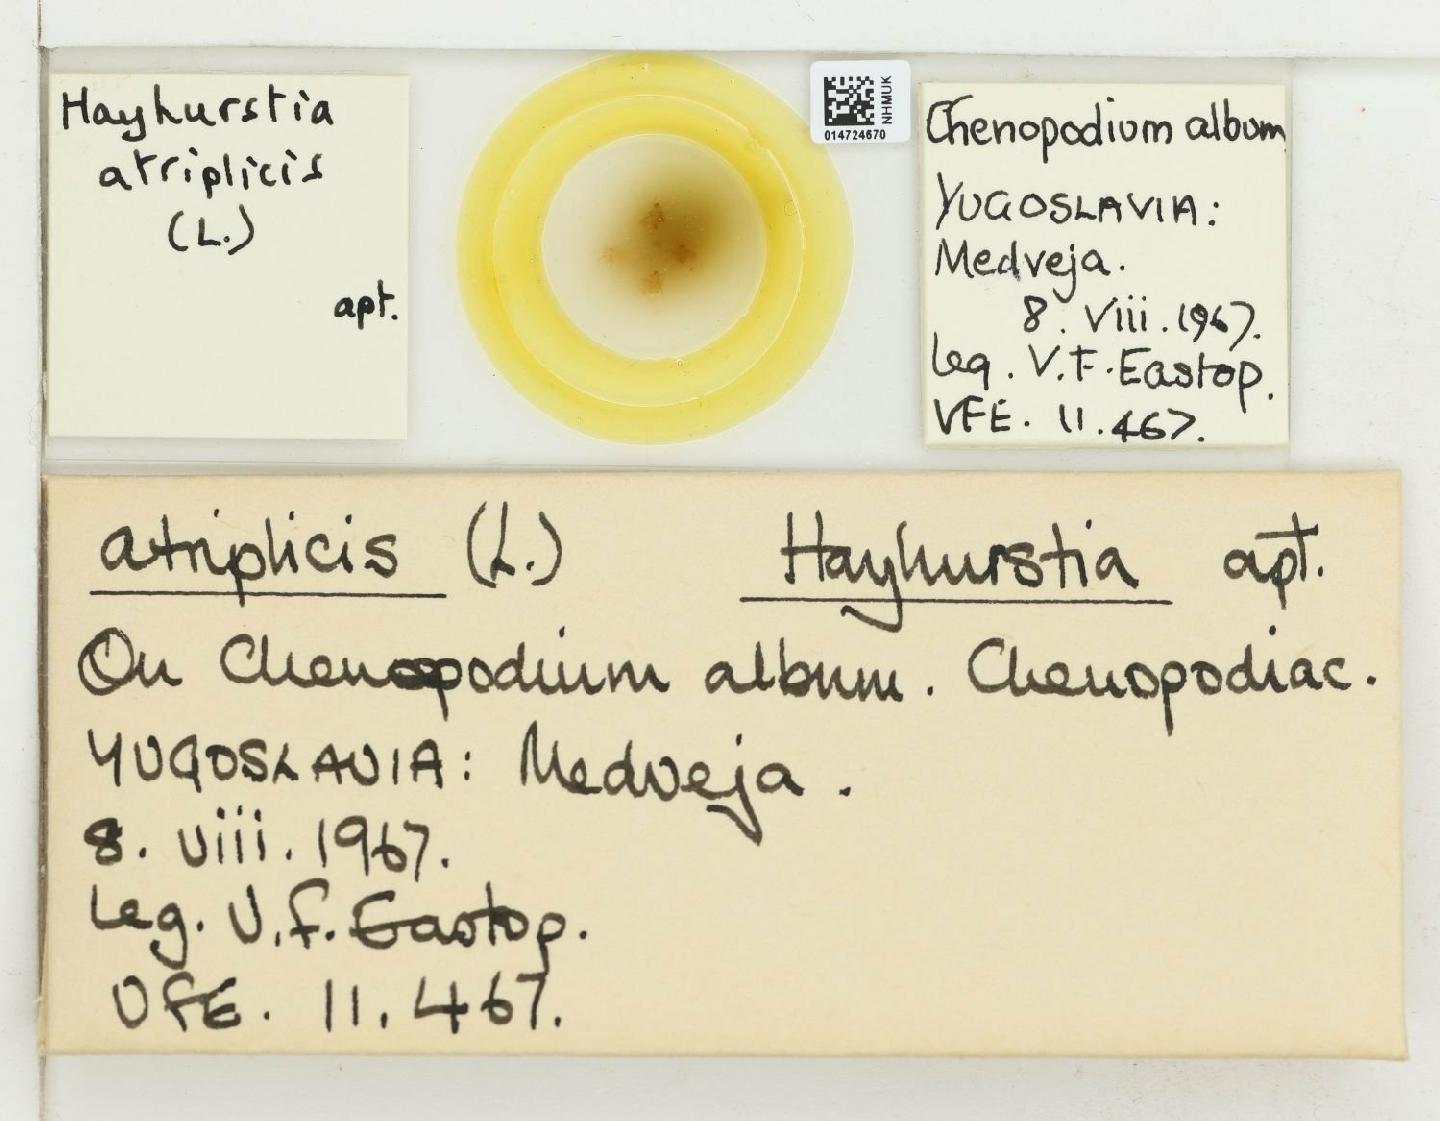 Hayhurstia
atriplicis
(L.)
apt.
NHMUK
014724670
Chenopodium album
YUGOSLAVIA:
Medveja.
8. Viii. 1967.
leg. V.F. Eastop.
VFE. 11.467.
atriplicis (L.) Hayhurstia apt.
On Chenopodium album. Chenopodiac.
YUGOSLAVIA: Medveja.
8. viii. 1967.
Leg. V.F. Eastop.
VFE. 11.467.